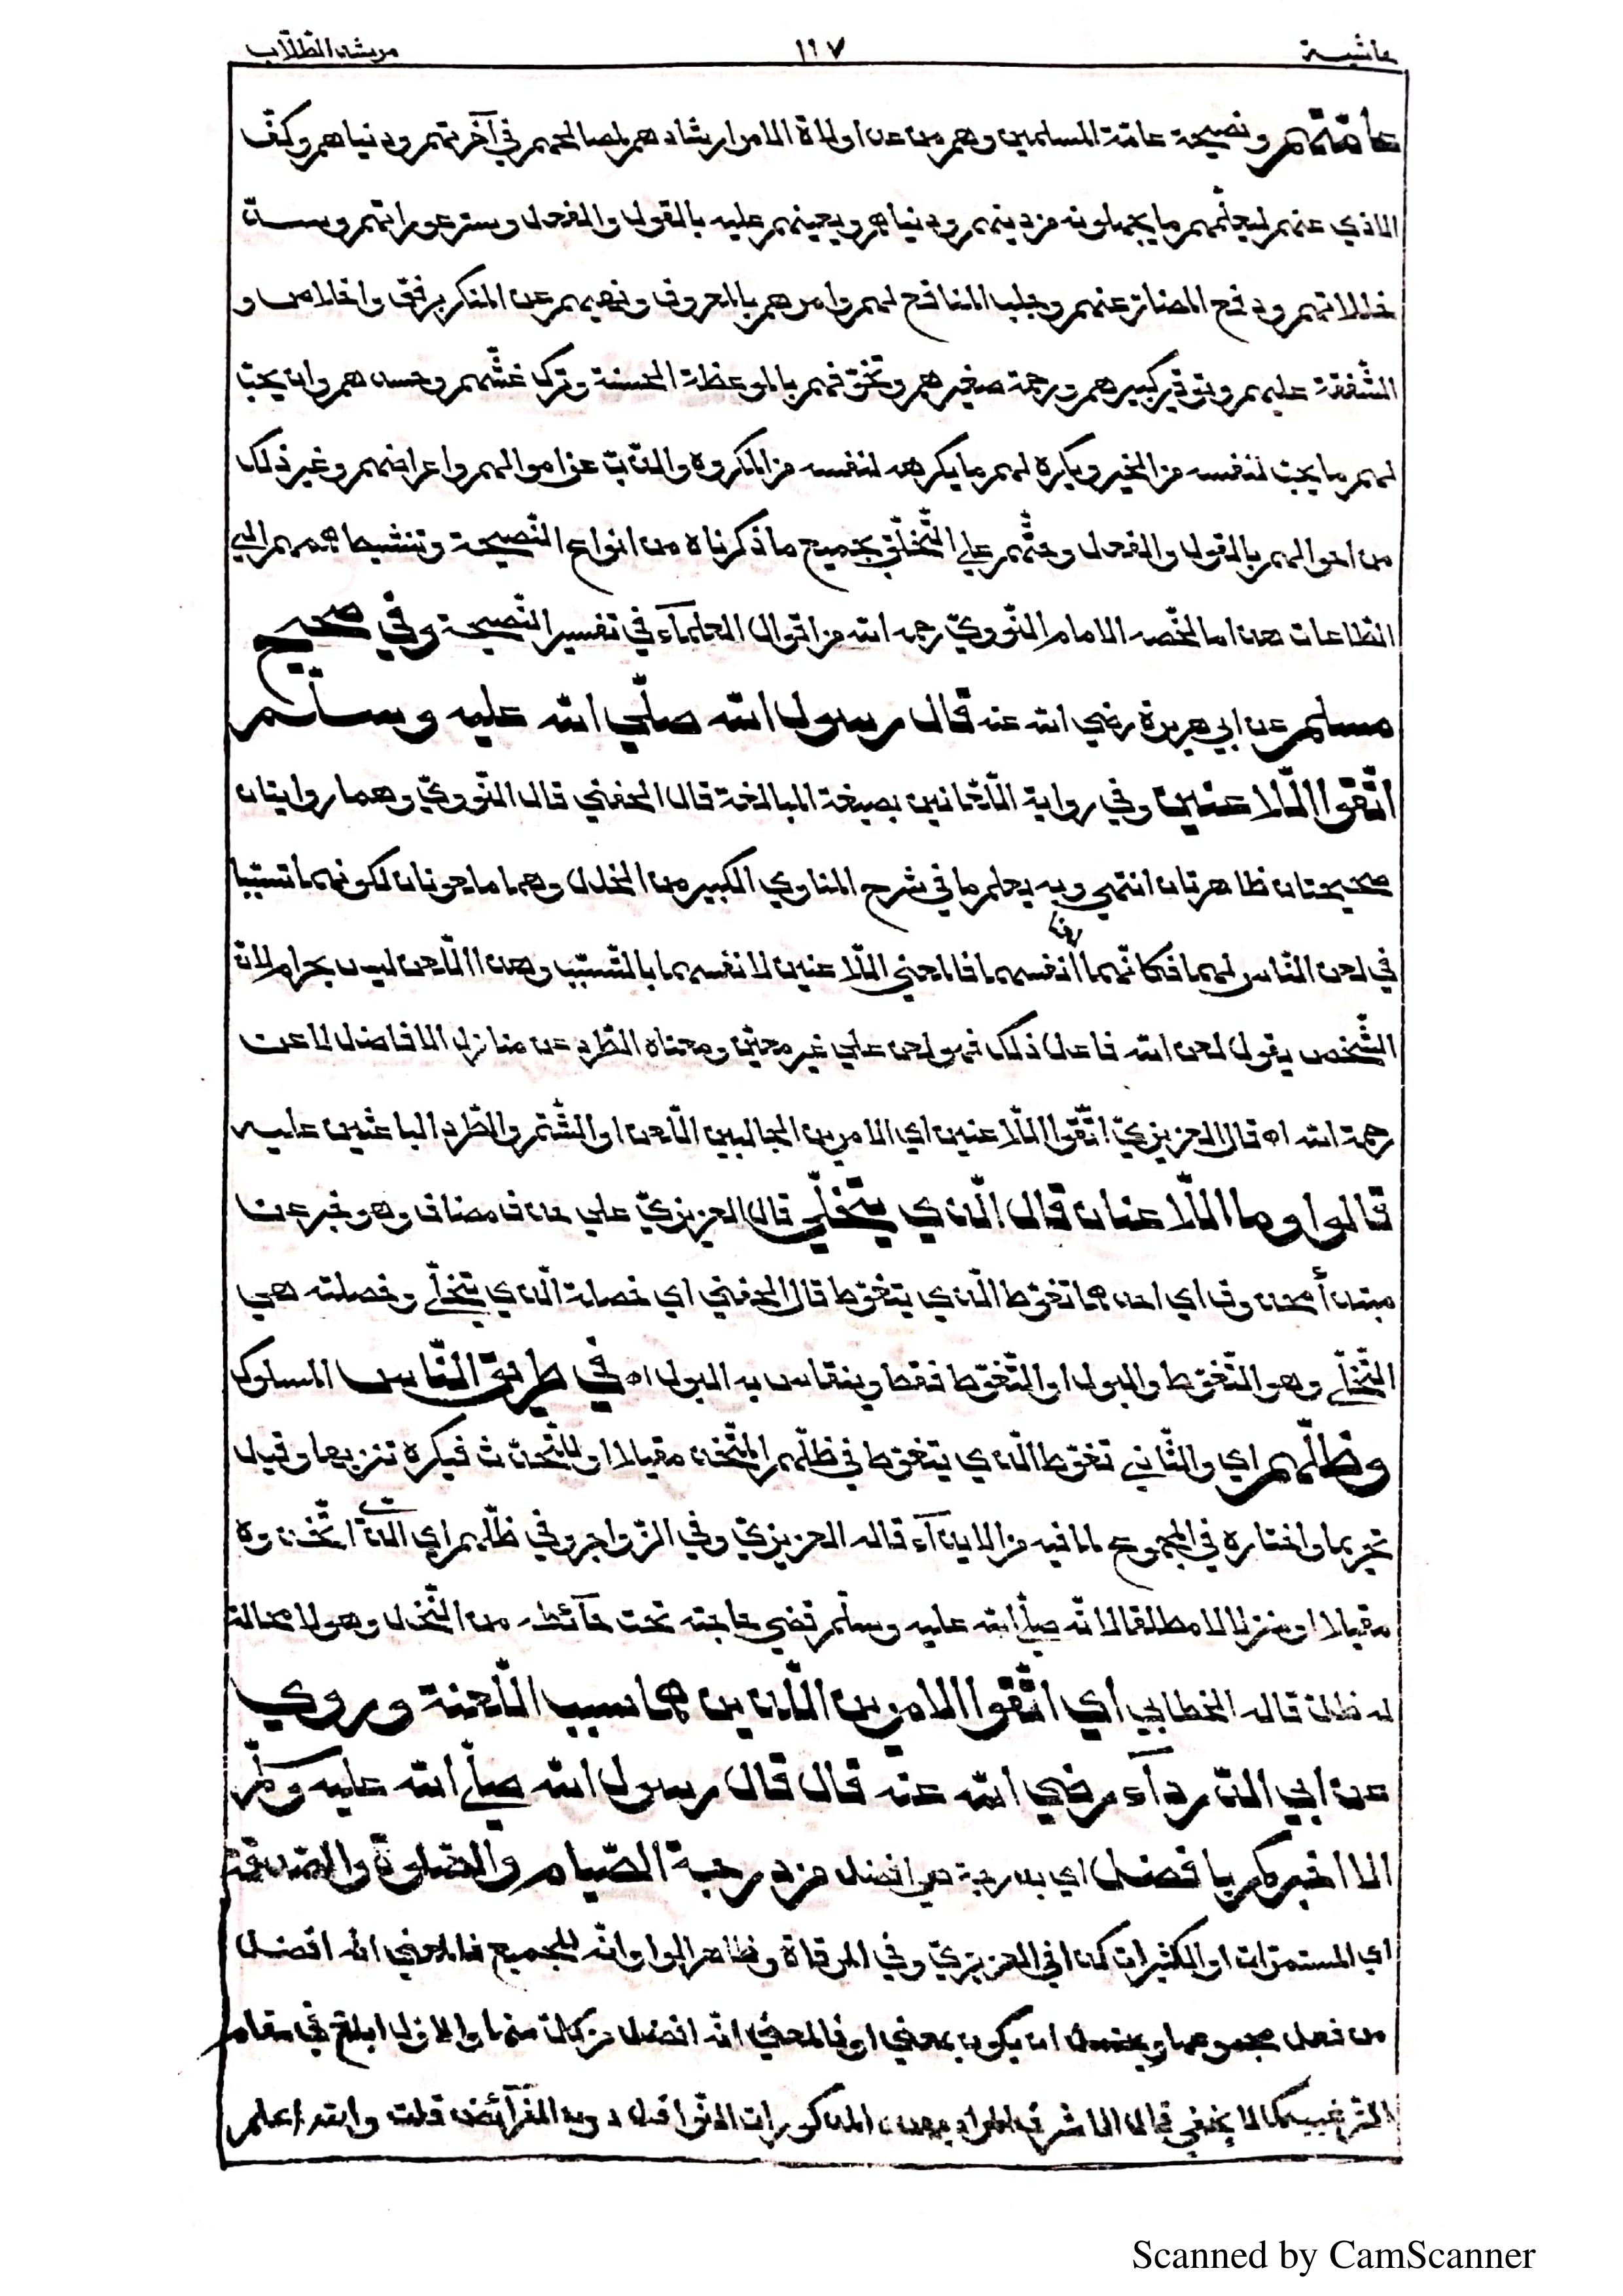 حاشية ١١٧ مرشد الطلّاب
عامّتهم ونصيحة عامّة المسلمين وهم من عدا ولاة الامر ارشادهم لمصالحهم في آخرتهم ودنياهم وكفّ
الاذي عنهم ليعلّمهم ما يجهلونه من دينهم ودنياهم ويعينهم عليه بالقول والفعل وستر عوراتهم وسدّ
خللاتهم ودفع المضارّ عنهم وجلب المنافع لهم وامرهم بالمعروف ونهيهم عن المنكر برفق واخلاص و
الشّفقة عليهم وتوقير كبيرهم ورحمة صغيرهم وتخوّفهم بالموعظة الحسنة وترك غشّهم وحسدهم وان يحبّ
لهم ما يحبّ لنفسه من الخير ويكره لهم ما يكرهه لنفسه من المكروه والذّبّ عن اموالهم واعراضهم وغير ذلك
من احوالهم بالقول والفعل وحثّهم علي التّخلّق بجميع ما ذكرناه من انواع النّصيحة وتنشيط هممهم الي
الطّاعات هذا ما لخّصه الامام النّوويّ رحمه الله من اقوال العلمآء في تفسير النّصيحة وفي صحيح
مسلم عن ابي هريرة رضي الله عنه قال رسول الله صلّي الله عليه وسلّم
اتّقوا اللّاعنين وفي رواية اللّعّانين بصيغة المبالغة قال الحفني قال النّوويّ وهما روايتان
صحيحتان ظاهرتان انتهي وبه يعلم ما في شرح المناوي الكبير من الخلل وهما ملعونان لكونهما تسبّبا
في لعن النّاس لهما فكانّهما لعنا انفسهما فالمعني اللّاعنين لانفسهما بالتّسبّب وهذا اللّعن ليس بحرام لانّ
الشّخص يقول لعن الله فاعل ذلك فهو لعن علي غير معيّن ومعناه الطّرد عن منازل الافاضل لا عن
رحمة الله اه قال العزيزيّ اتّقوا اللّاعنين اي الامرين الجالبين اللّعن او الشّتم والطّرد الباعثين عليه
قالوا وما اللّاعنان قال الّذي يتخلّي قال العزيزيّ علي حذف مضاف وهو خبر عن
مبتدأ محذوف اي احدهما تغوّط الّذي يتغوّط قال الحفني اي خصلة الّذي يتخلّي وخصلته هي
التّخلّي وهو التّغوّط والبول او التّغوّط فقط وينقاس به البول اه في طريق النّاس المسلوك
وظلّهم اي والثّاني تغوّط الّذي يتغوّط في ظلّهم المتّخذ مقيلا او للتّحدّث فيكره تنزيها وقيل
تحريما واختاره في المجموع لما فيه من الايذآء قاله العزيزيّ وفي الزّواجر وفي ظلّهم اي الّذي اتّخذوه
مقيلا او منزلا لا مطلقا لانّه صلّي الله عليه وسلّم قضي حاجته تحت حآئط من النّخل وهو لا محالة
له ظلّ قاله الخطّابي اي اتّقوا الامرين اللّذين هما سبب اللّعنة وروي
عن ابي الدّردآء رضي الله عنه قال قال رسول الله صلّي الله عليه وسلّم
الا اخبركم بافضل اي بدرجة هي افضل من درجة الصّيام والصّلوة والصّدقة
اي المستمرّات او الكثيرات كذا في العزيزيّ وفي المرقاة وظاهر الواو انّه للجميع فالمعني انّه افضل
من فعل مجموعها ويحتمل ان يكون بمعني او فالمعني انّه افضل من كلّ منها والاوّل ابلغ في مقام
التّرغيب كما لا يخفي قال الاشرف المراد بهذه المذكورات النّوافل دون الفرآئض قلت والله اعلم
Scanned by CamScanner